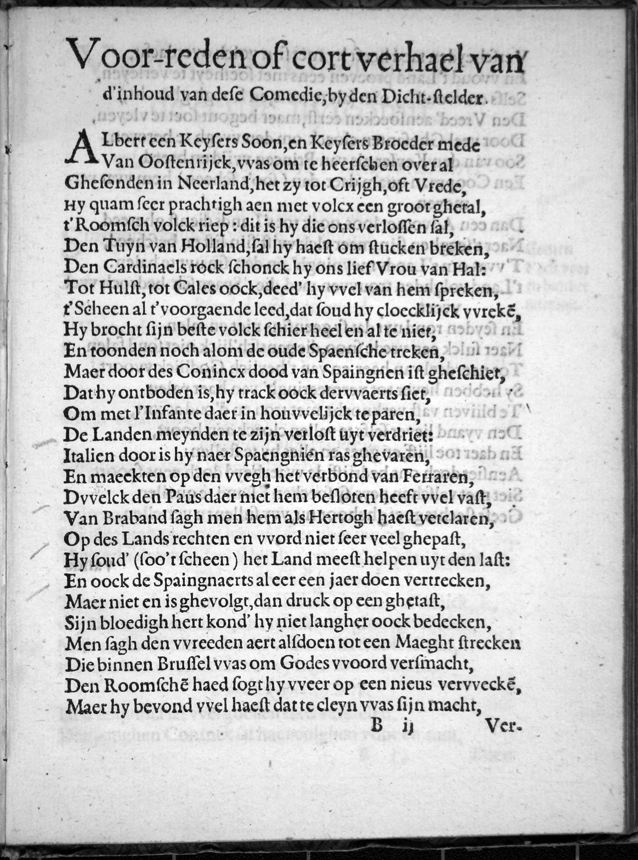 Voor-reden of cort verhael van
d'inhoud van dese Comedie, by den Dicht-stelder.
ALbert een Keysers Soon, en Keysers Broeder mede
Van Oostenrijck, vvas om te heerschen over al
Ghesonden in Neerland, het zy tot Crijgh, oft Vrede,
Hy quam seer prachtigh aen met volcx een groot ghetal,
t'Roomsch volck riep: dit is hy die ons verlossen sal,
Den Tuyn van Holland, sal hy haest om stucken breken,
Den Cardinaels rock schonck hy ons lief Vrou van Hal:
Tot Hulst, tot Cales oock, deed' hy vvel van hem spreken,
t'Scheen al t'voorgaende leed, dat soud hy cloecklijck vvrekē,
Hy brocht sijn beste volck schier heel en al te niet,
En toonden noch alom de oude Spaensche treken,
Maer door des Conincx dood van Spaingnen ist gheschiet,
Dat hy ontboden is, hy track oock dervvaerts siet,
Om met l'Infante daer in houvvelijck te paren,
De Landen meynden te zijn verlost uyt verdriet:
Italien door is hy naer Spaengnien ras ghevaren,
En maeckten op den vvegh het verbond van Ferraren,
Dvvelck den Paus daer met hem besloten heeft vvel vast,
Van Braband sagh men hem als Hertogh haest verclaren,
Op des Lands rechten en vvord niet seer veel ghepast,
Hy soud' (soo't scheen) het Land meest helpen uyt den last:
En oock de Spaingnaerts al eer een jaer doen vertrecken,
Maer niet en is ghevolgt, dan druck op een ghetast,
Sijn bloedigh hert kond' hy niet langher oock bedecken,
Men sagh den vvreeden aert alsdoen tot een Maeght strecken
Die binnen Brussel vvas om Godes vvoord versmacht,
Den Roomschē haed sogt hy vveer op een nieus vervveckē,
Maer hy bevond vvel haest dat te cleyn vvas sijn macht,
B ij Ver-